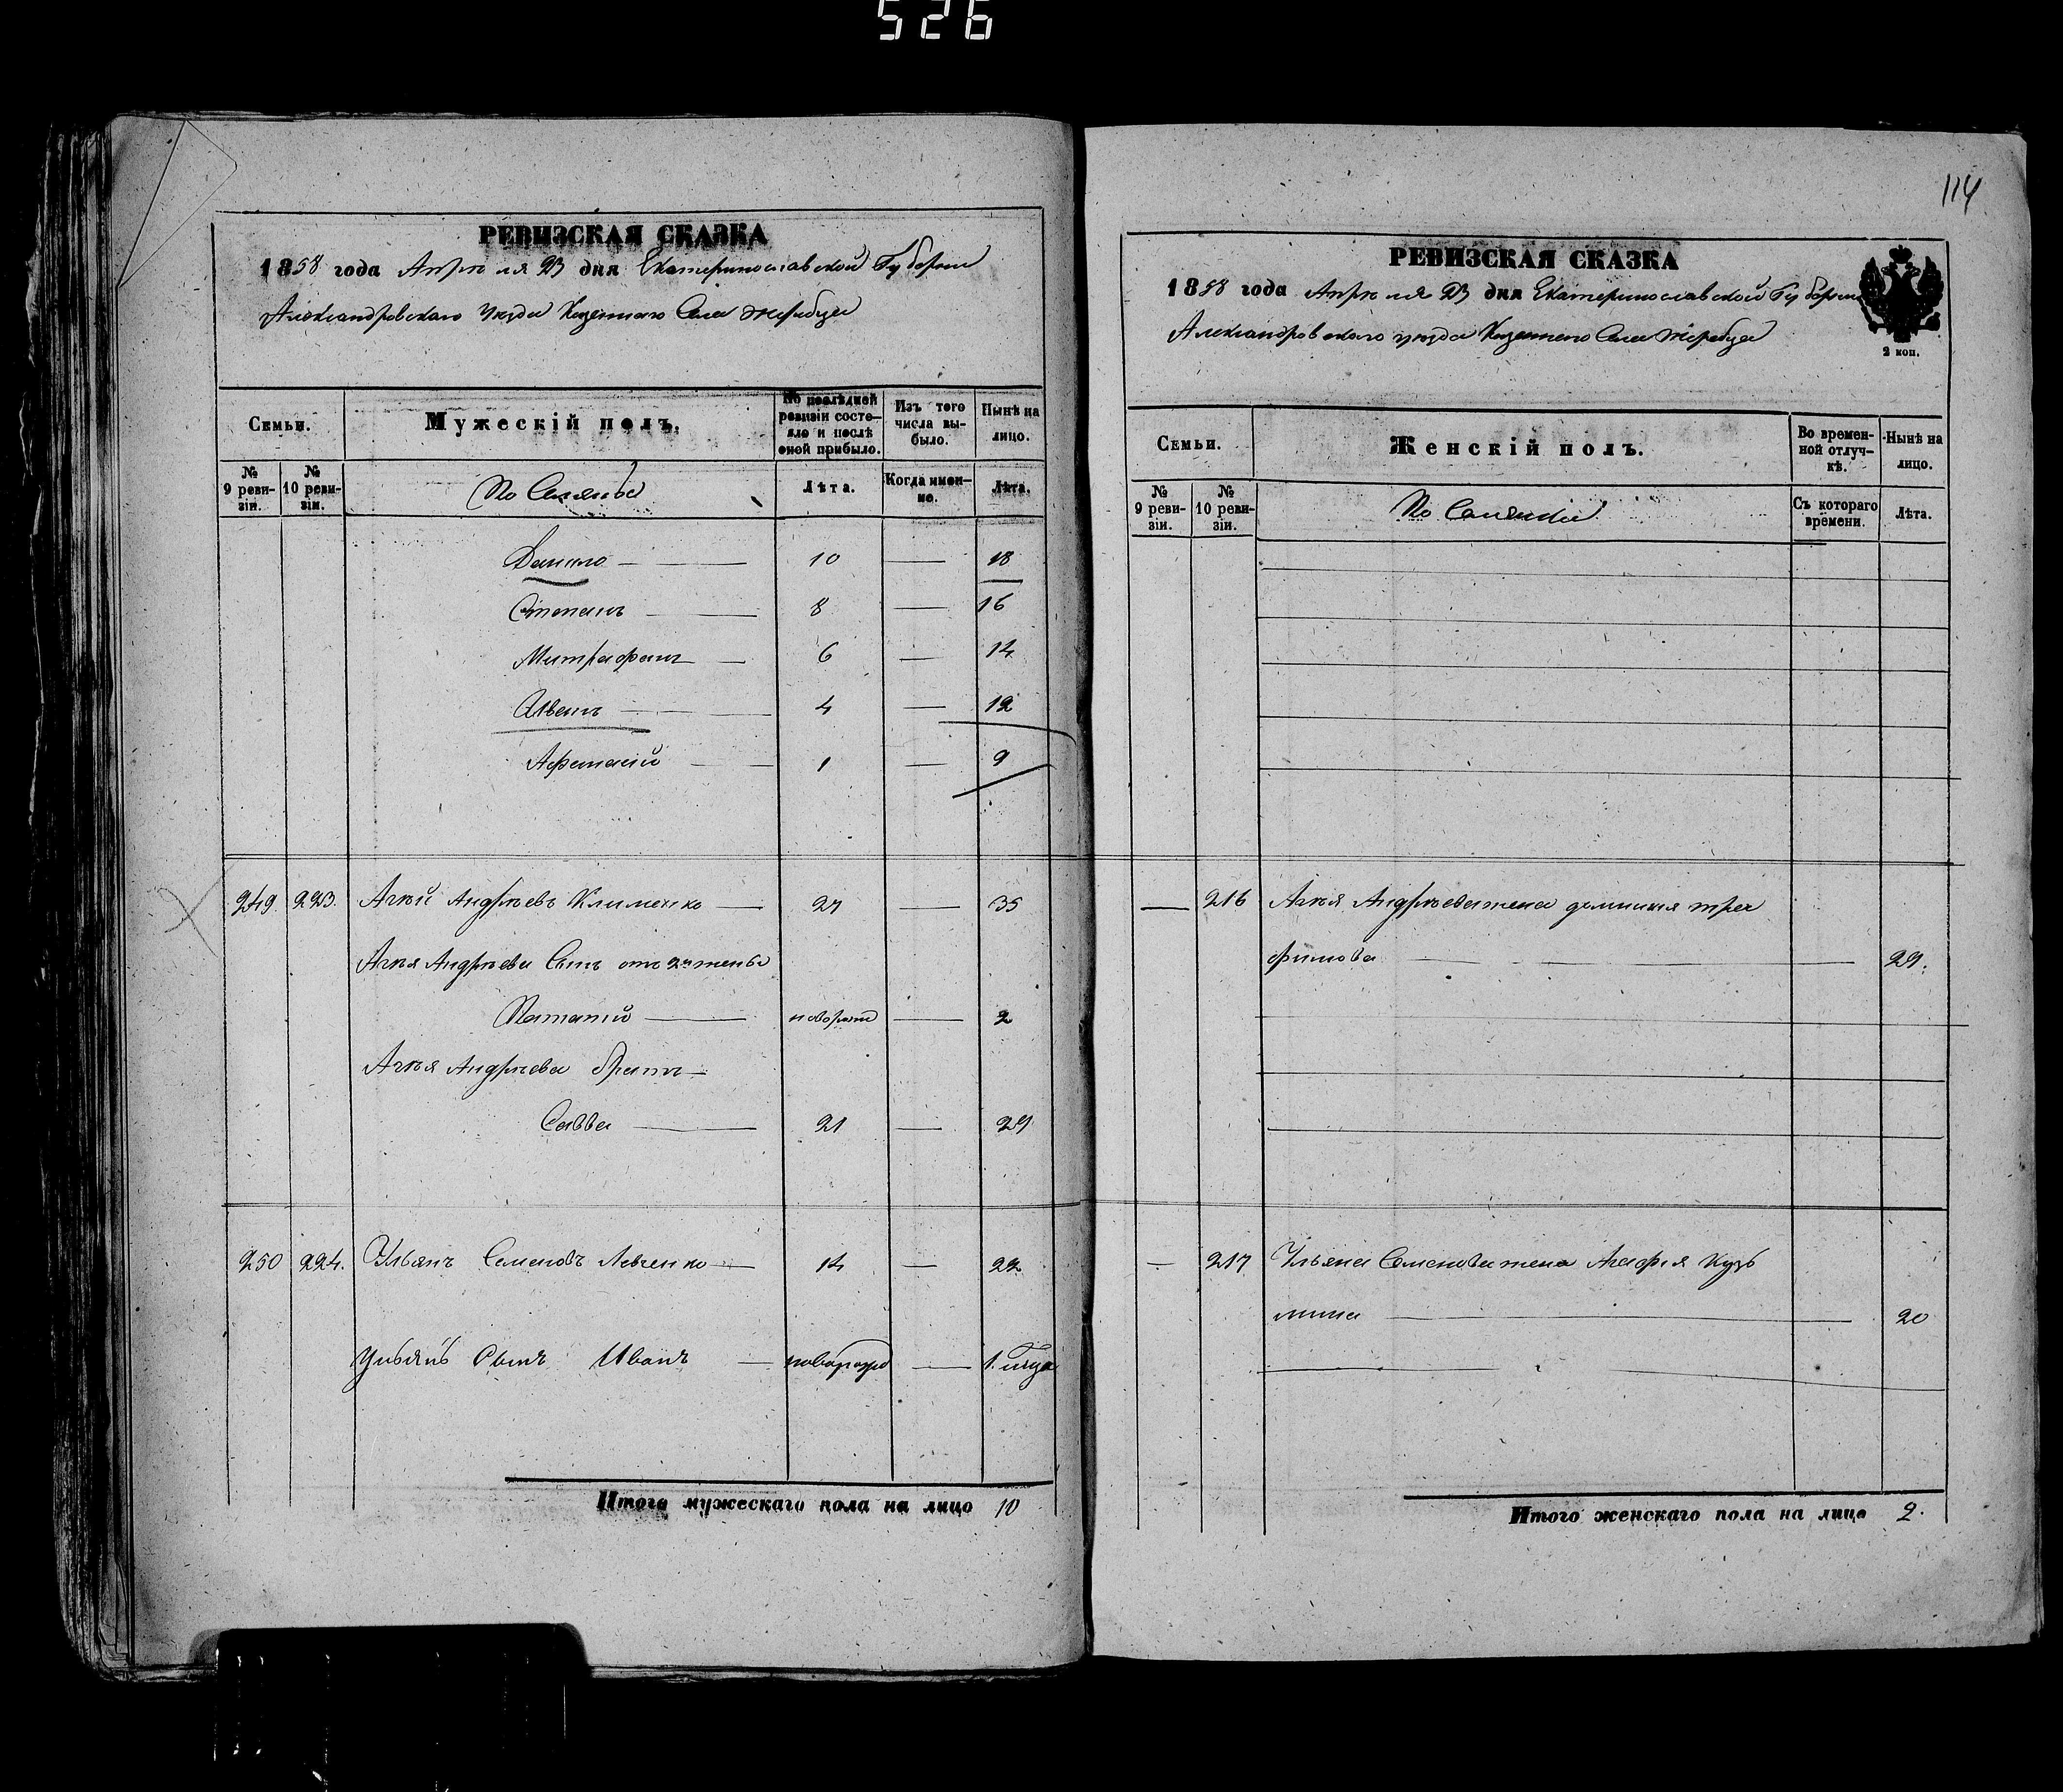 526
РЕВИЗСКАЯ СКАЗКА
1858 года Апреля 23 дня Екатеринославской Губернии
Александровскаго Уезда Казеннаго Села Жеребца
Семьи.
Мужескій полъ.
По последней ревизіи состояло и после оной прибыло.
Изъ того числа выбыло.
Ныне на лицо.
№ 9 ревизіи.
№ 10 ревизіи.
Лета.
Когда именно.
Лета.
Данило 10 — 18
Степанъ 8 — 16
Митрофанъ 6 — 14
4 — 12
Афанасий 1 — 9
249. 223. Агѣй Андрѣевъ Клименко — 27 — 35
Агѣя Андрѣева Сынъ отъ 2й жены
Патапий — новорож — 2
Агѣя Андрѣева братъ —
Савва — 21 — 29
250 224. Ульянъ Семеновъ Левченко — 14 — 22
Ульянъ Сынъ Иванъ — новорожд — 1.
Итого мужескаго пола на лицо 10
114
РЕВИЗСКАЯ СКАЗКА
1858 года Апреля 23 дня Екатеринославской Губернии
Александровскаго уезда Казеннаго Села Жеребца
2 коп.
Семьи.
Женскій полъ.
Во временной отлучкѣ.
Нынѣ на лицо.
№ 9 ревизіи.
№ 10 ревизіи.
Съ котораго времени.
Лѣта.
— 216 Агѣя Андрѣева жена Домникия Тро
фимова — 29.
— 217 Ульяна Семенова жена Агафия Кузь
мина — 20
Итого женскаго пола на лицо 2.